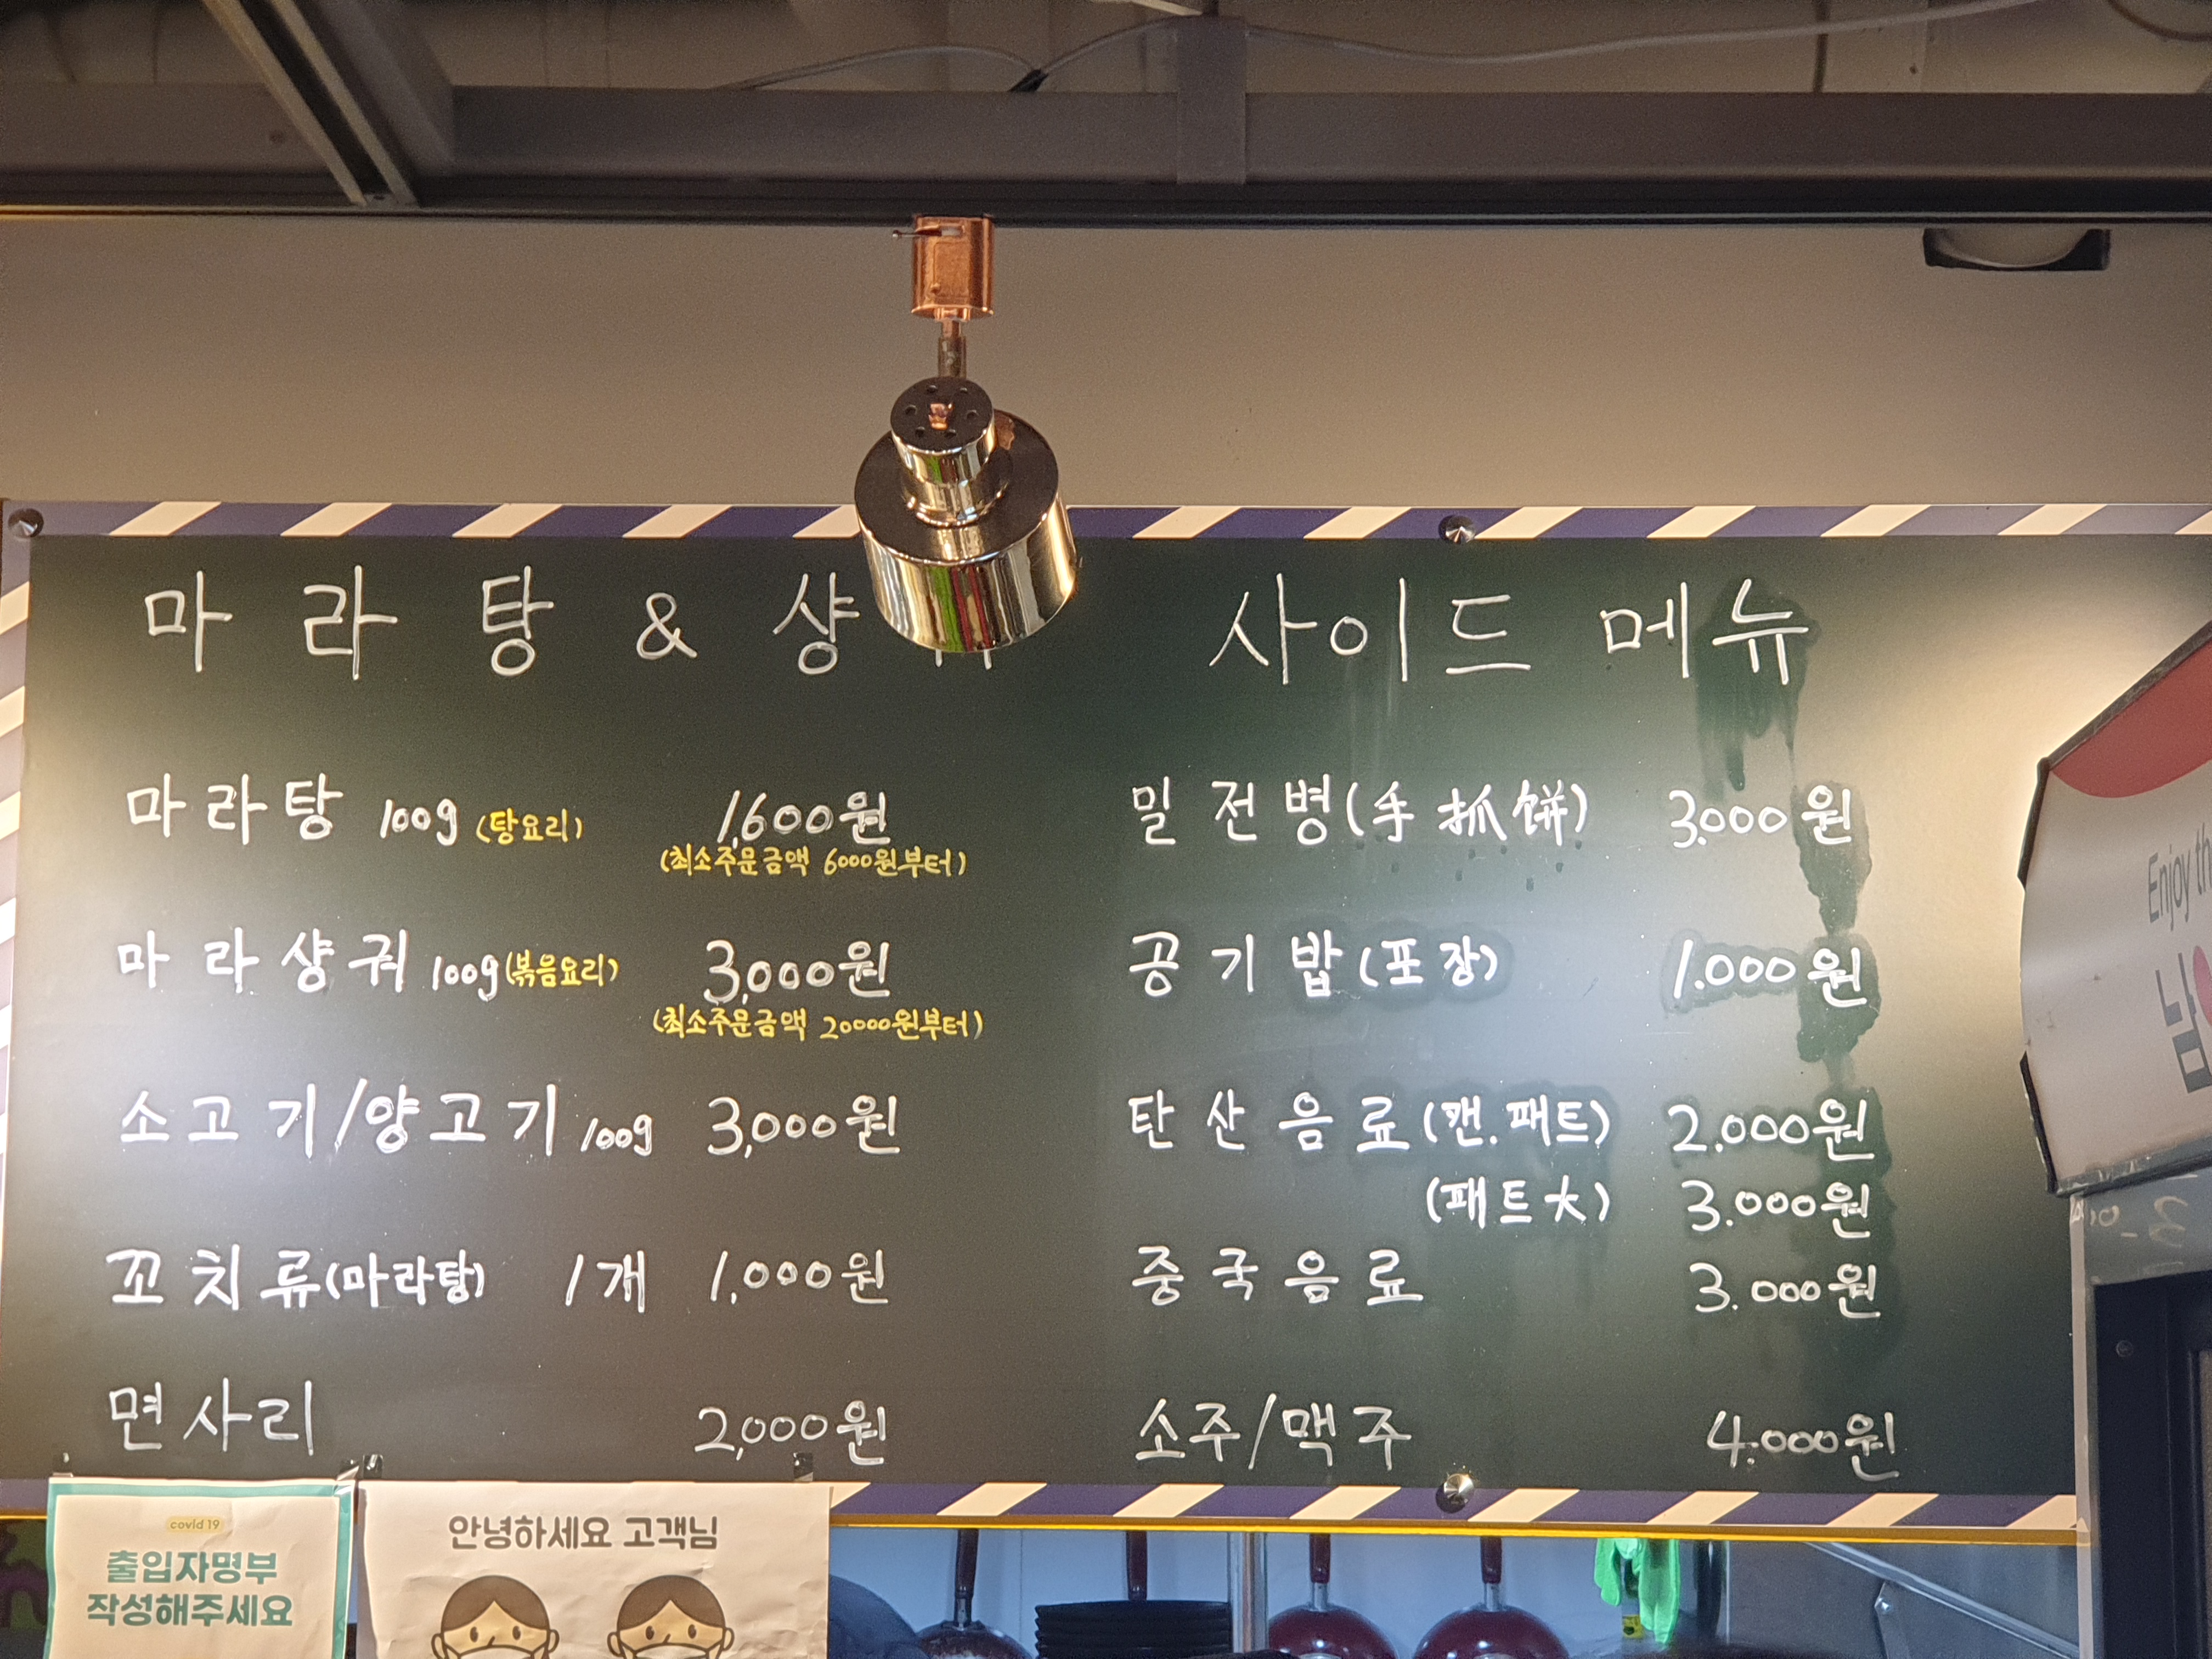 마라탕 & 샹
마라탕 100g (탕요리) 1,600원
(최소주문금액 6000원부터)
마라샹궈 100g (볶음요리) 3,000원
(최소주문금액 20000원부터)
소고기/양고기 100g 3,000원
꼬치류(마라탕) 1개 1,000원
면사리 2,000원
사이드 메뉴
밀전병(手抓饼) 3.000원
공기밥(포장) 1.000원
탄산음료(캔.패트) 2.000원
(패트大) 3.000원
중국음료 3.000원
소주/맥주 4.000원
Enjoy th
covid 19
출입자명부
작성해주세요
안녕하세요 고객님